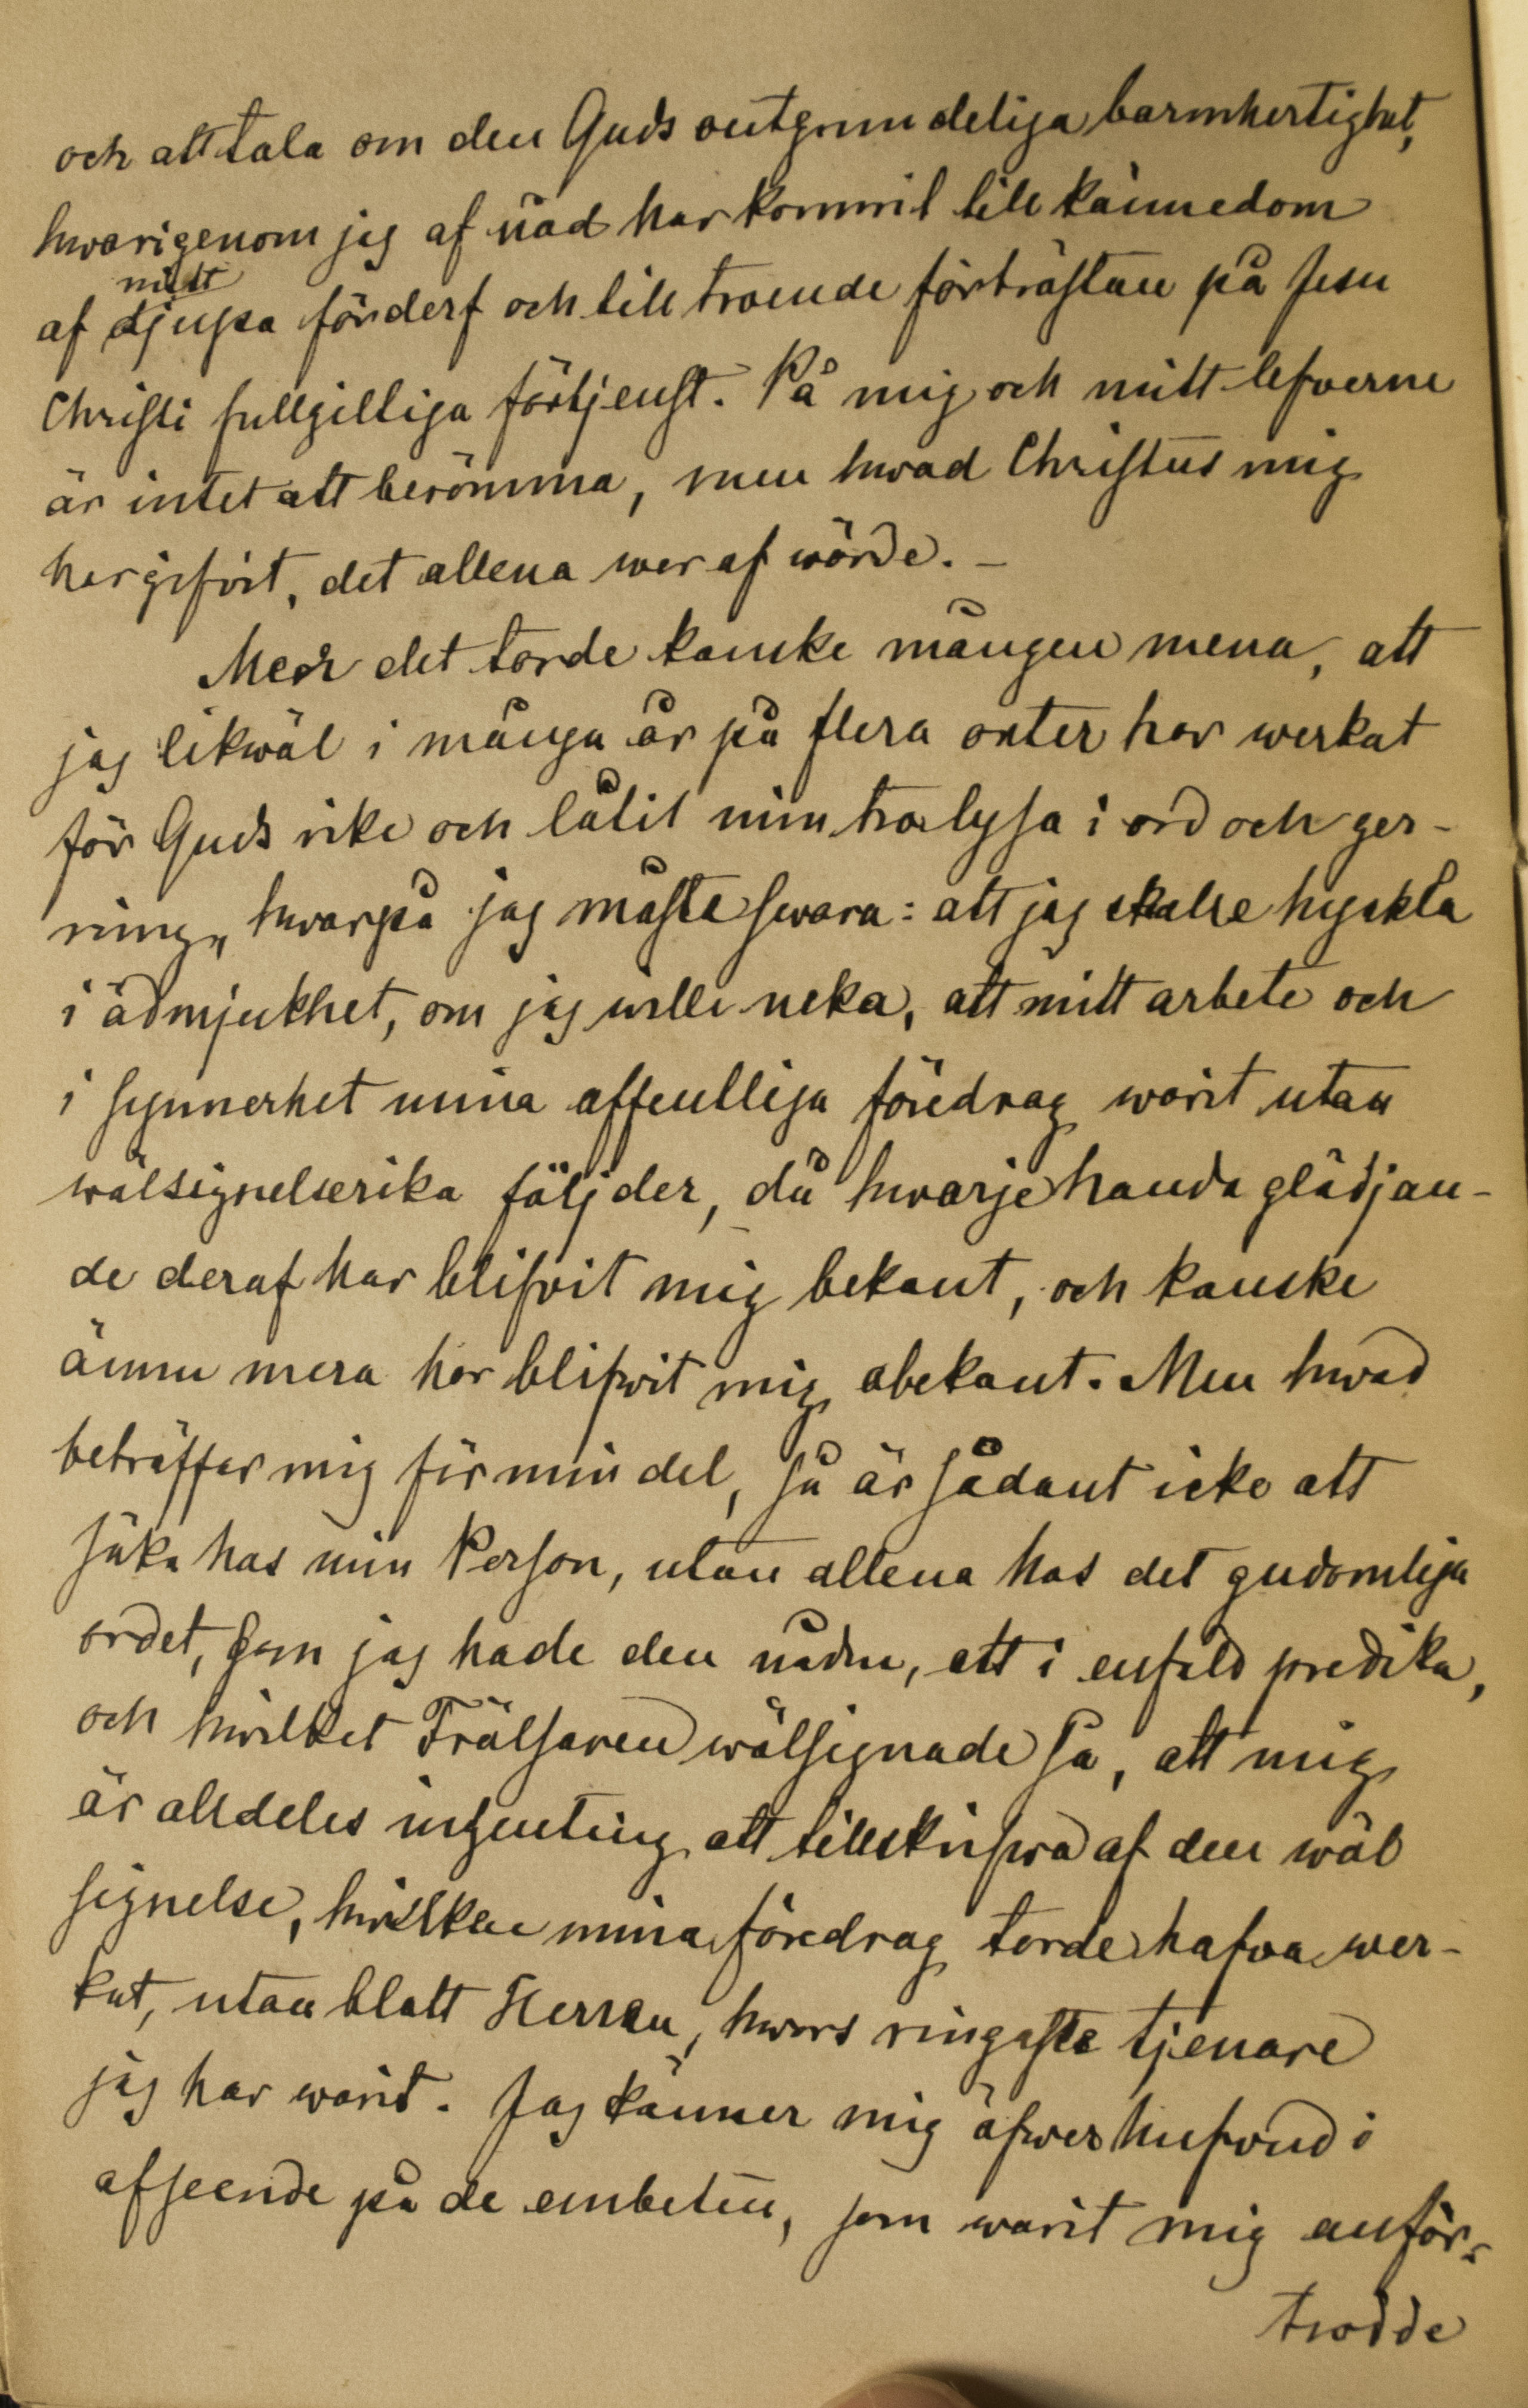 och att tala om den Guds outgrundeliga barmhertighet,
hwarigenom jag af nåd har kommit till kännedom
mitt
af djupa förderf och till troende förtröstan på Jesu
Christi fullgilliga förtjenst. På mig och mitt lefverne
är intet att berömma, men hwad Christus mig
har gifvit, det allena war af wärde. –
Men det torde kanske mången mena, att
jag likwäl i många år på flera orter har werkat
för Guds rike och låtit min tro lysa i ord och ger-
ning, hwarpå jag måste swara: att jag skulle hyckla
i ödmjukhet, om jag wille neka, att mitt arbete och
i synnerhet mina offentliga föredrag warit utan
wälsignelserika följder, då hwarjehanda glädjan-
de deraf har blifvit mig bekant, och kanske
ännu mera har blifvit mig obekant. Men hwad
beträffar mig för min del, så är sådant icke att
söka hos min Person, utan allena hos det gudomliga
ordet, som jag hade den nåden, att i enfald predika,
och hwilket Frälsaren wälsignade så, att mig
är alldeles ingenting att tillskrifwa af den wäl
signelse, hwilken mina föredrag torde hafva wer-
kat, utan blott Herran, hwars ringaste tjenare
jag har warit. Jag känner mig äfwer hufvud i
afseende på de embeten, som warit mig anför-
trodde